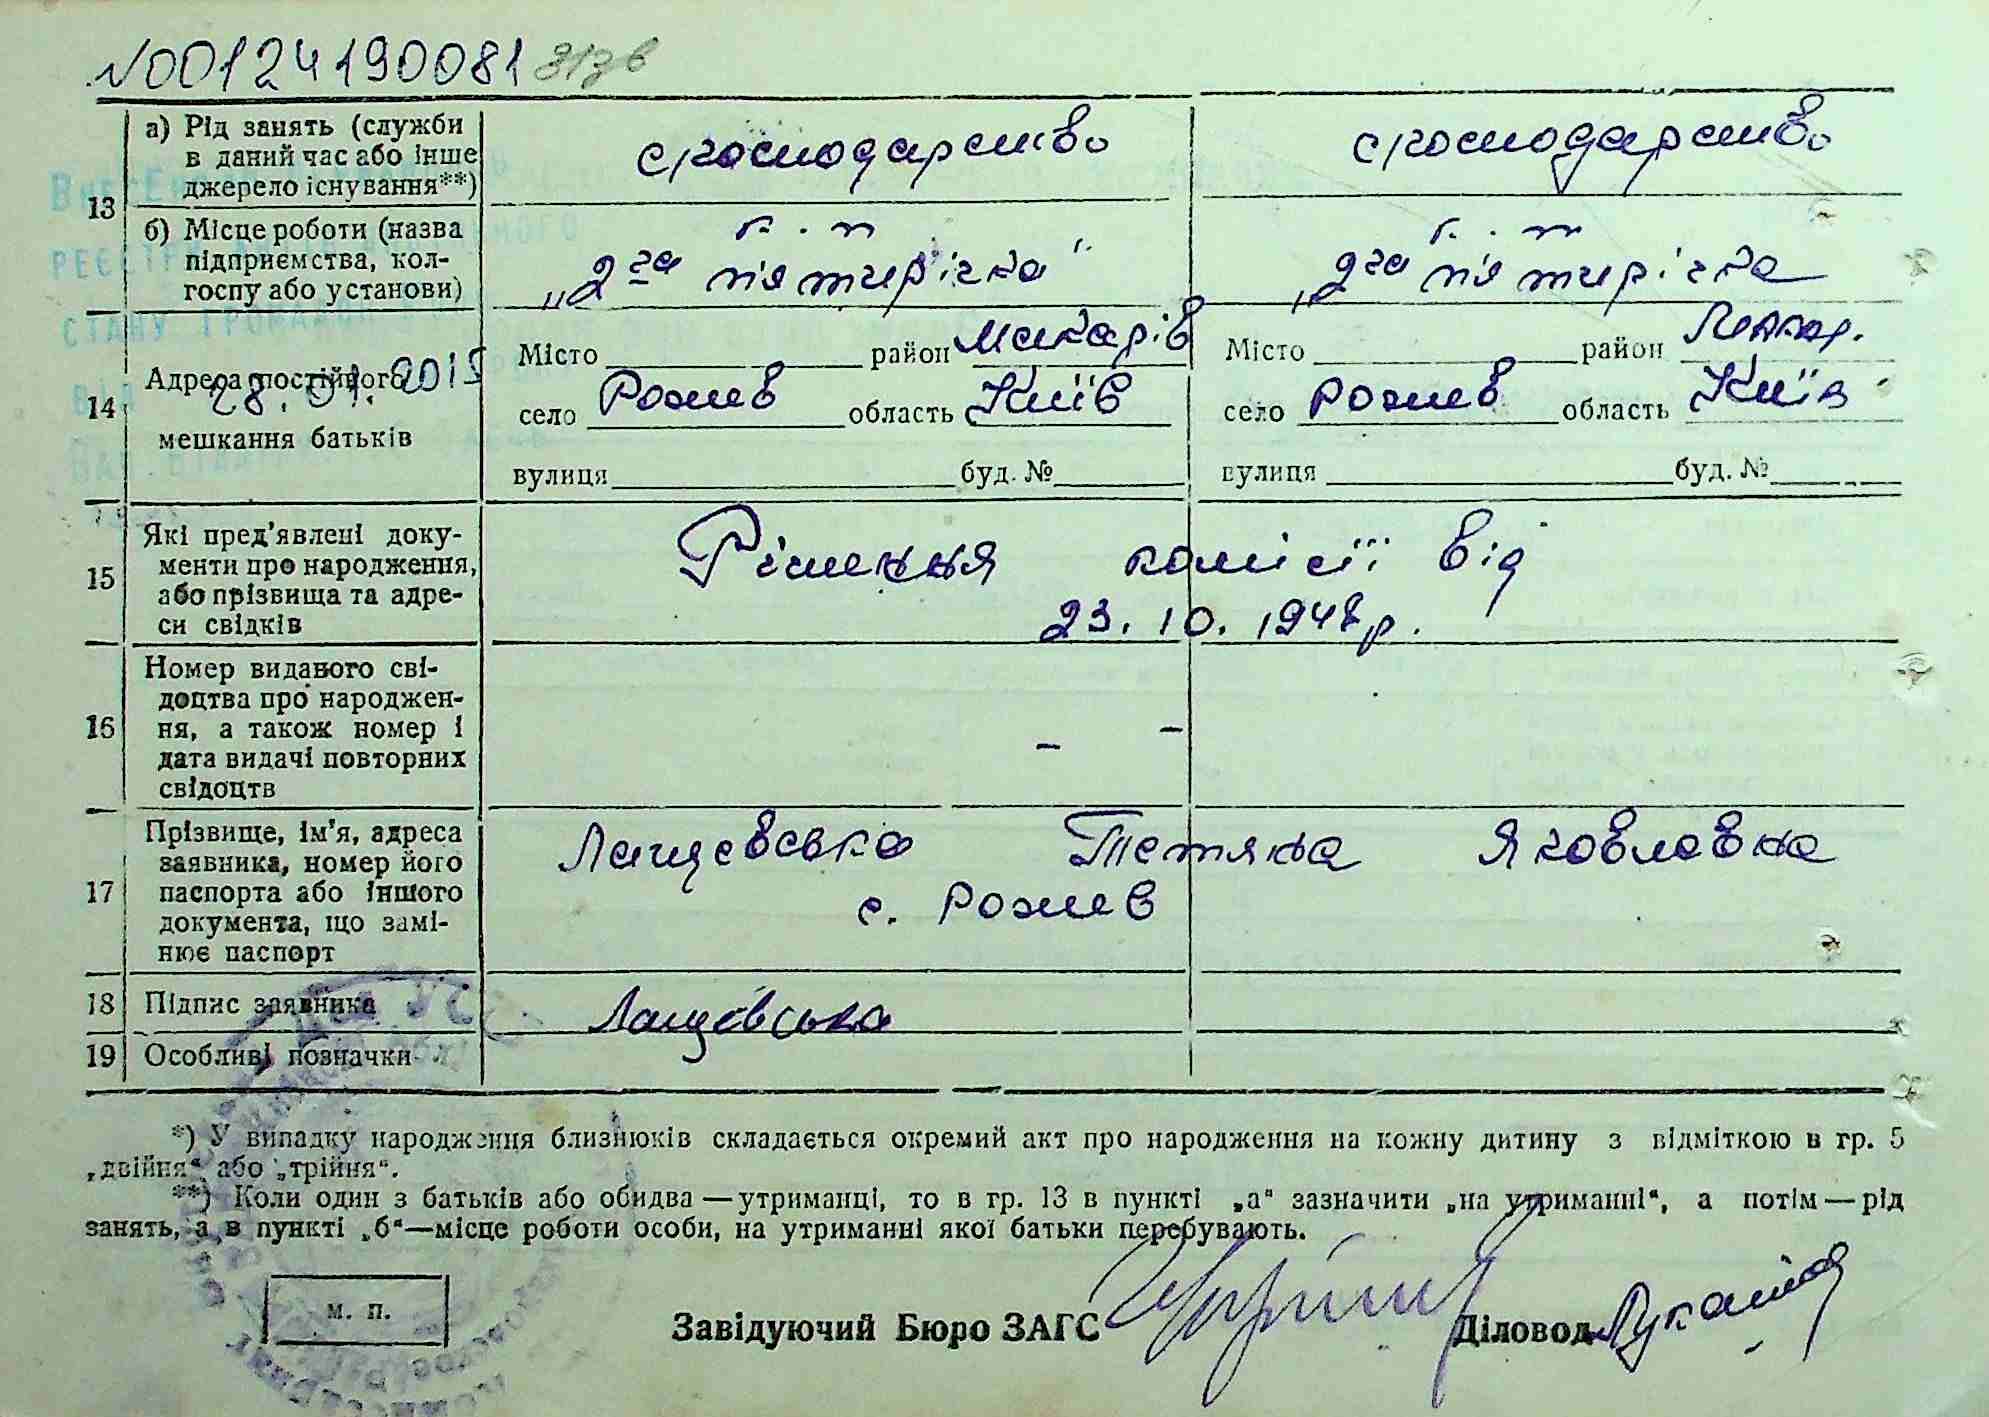 №00124190081
13
а) Рід занять (служби
в даний час або інше
джерело існування**)
с господарство
с господарство
б) Місце роботи (назва
підприємства, кол-
госпу або установи)
к. г.
„2га п'ятирічка"
к. г.
„2га п'ятирічка
14
Адреса постійного
мешкання батьків
28. 01. 2015
Місто район Макарів
село Рожев область Київ
вулиця буд. №
Місто район Макар.
село Рожев область Київ
вулиця буд. №
15
Які пред’явлені доку-
менти про народження,
або прізвища та адре-
си свідків
Рішення комісії від
23. 10. 1947р.
16
Номер виданого сві-
доцтва про народжен-
ня, а також номер і
дата видачі повторних
свідоцтв
– –
17
Прізвище, ім’я, адреса
заявника, номер його
паспорта або іншого
документа, що замі-
нює паспорт
Лащевська Тетяна Яковлевна
с. Рожев
18
Підпис заявника
Лащевська
19
Особливі позначки
*) У випадку народження близнюків складається окремий акт про народження на кожну дитину з відміткою в гр. 5
„двійня“ або „трійня“.
**) Коли один з батьків або обидва — утриманці, то в гр. 13 в пункті „а“ зазначити „на утриманні“, а потім — рід
занять, а в пункті „б“—місце роботи особи, на утриманні якої батьки перебувають.
м. п.
Завідуючий Бюро ЗАГС
Діловод